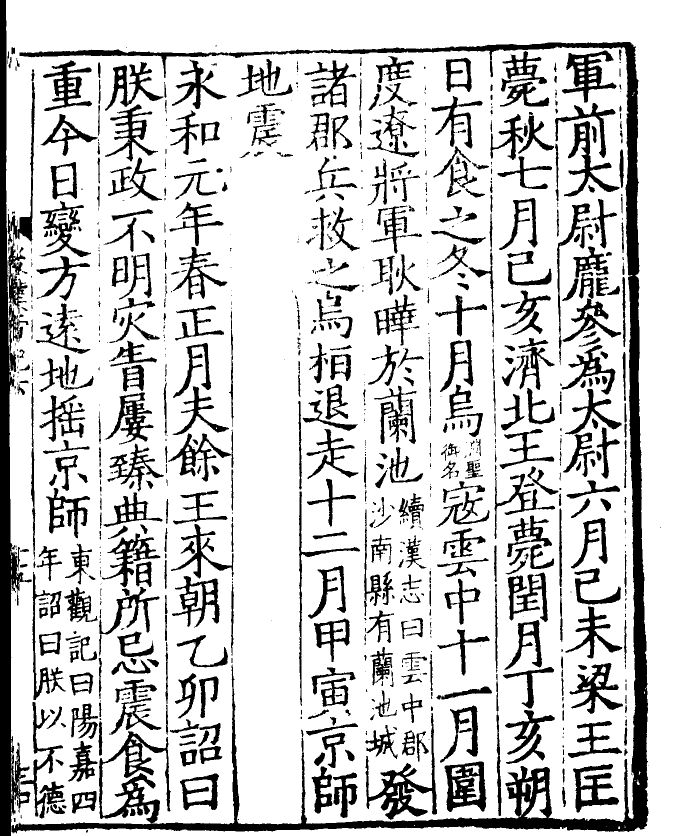 軍前太尉龐參為太尉六月己未梁王匡
薨秋七月己亥濟北王登薨閏月丁亥朔
日有食之冬十月烏淵聖御名寇雲中十一月圍
度遼將軍耿曄於蘭池續漢志曰雲中郡沙南縣有蘭池城發
諸郡兵救之烏栢退走十二月甲寅京師
地震
永和元年春正月夫餘王來朝乙卯詔曰
朕秉政不明灾眚屢臻典籍所忌震食為
重今日變方逺地揺京師東觀記曰陽嘉四年詔曰朕以不德